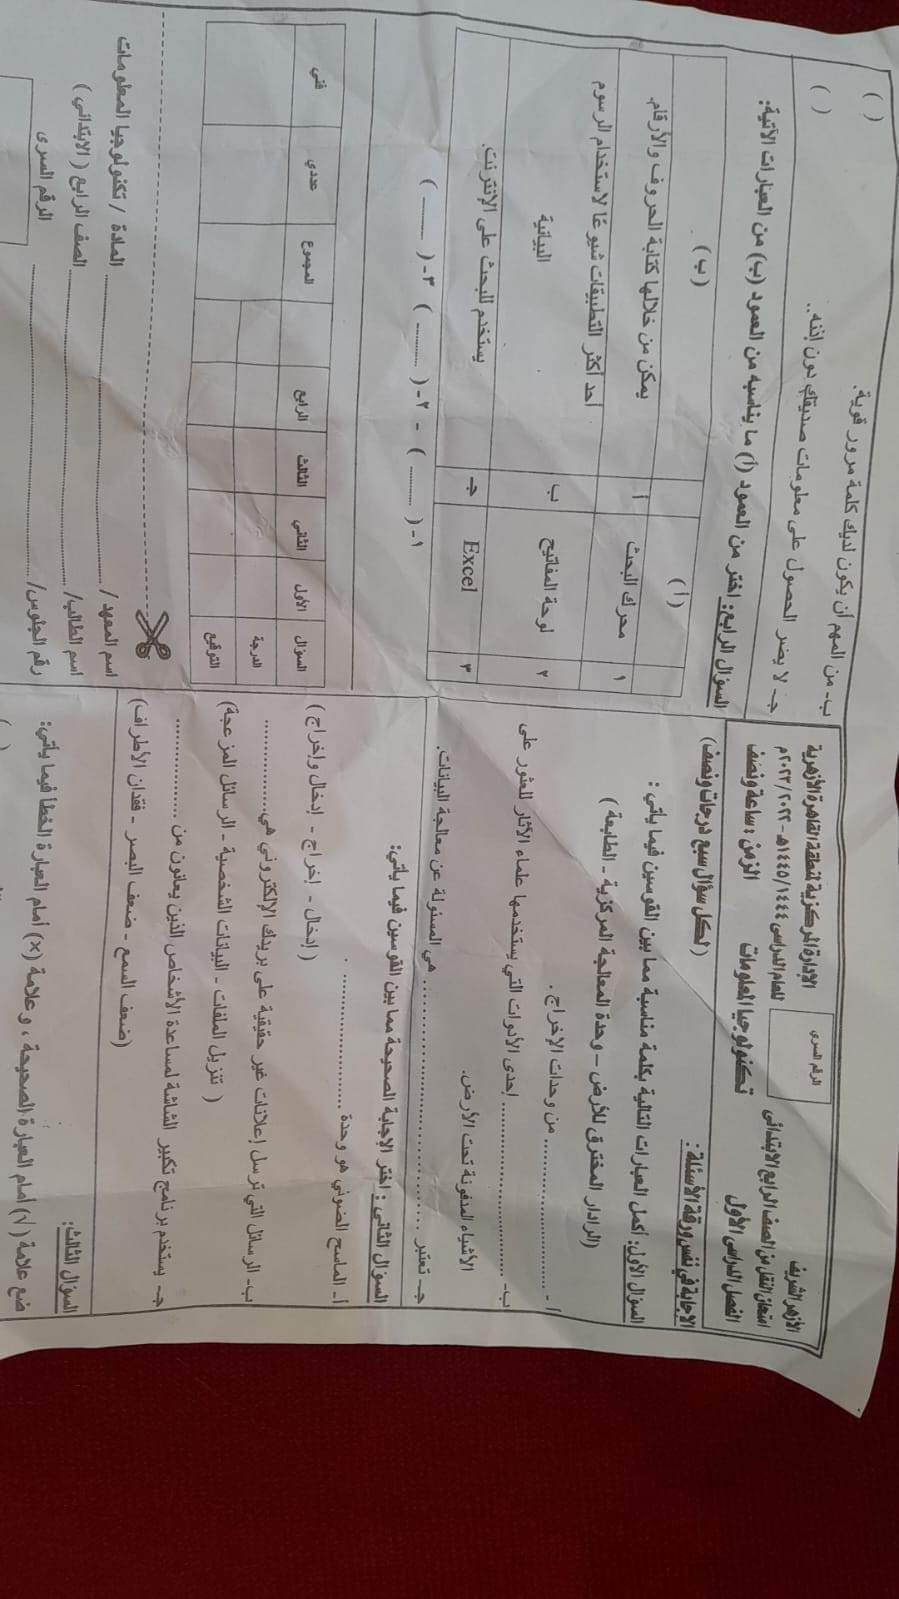 الأزهر الشريف
الرقم السرى
الإدارة المركزية لمنطقة القاهرة الأزهرية
امتحان النقل من الصف الرابع الابتدائى
للعام الدراسى ١٤٤٤/١٤٤٥هـ - ٢٠٢٢/٢٠٢٣م
الفصل الدراسى الأول
تكنولوجيا المعلومات
الزمن : ساعة ونصف
الإجابة في نفس ورقة الأسئلة :
(لكل سؤال سبع درجات ونصف)
السؤال الأول: أكمل العبارات التالية بكلمة مناسبة مما بين القوسين فيما يأتي :
(الرادار المخترق للأرض – وحدة المعالجة المركزية – الطابعة )
أ - .................... من وحدات الإخراج .
ب- .................... إحدى الأدوات التي يستخدمها علماء الآثار للعثور على
الأشياء المدفونة تحت الأرض.
جـ - تعتبر .................... هي المسئولة عن معالجة البيانات.
السؤال الثانى : اختر الإجابة الصحيحة مما بين القوسين فيما يأتي:
أ- الماسح الضوئي هو وحدة .................... .
(إدخال – إخراج – إدخال وإخراج )
ب- الرسائل التي ترسل إعلانات غير حقيقية على بريدك الإلكتروني هي ..........
( تنزيل الملفات – البيانات الشخصية – الرسائل المزعجة)
جـ - يستخدم برنامج تكبير الشاشة لمساعدة الأشخاص الذين يعانون من ..........
(ضعف السمع – ضعف البصر – فقدان الأطراف)
السؤال الثالث:
ضع علامة (√) أمام العبارة الصحيحة، وعلامة (×) أمام العبارة الخطأ فيما يأتي:
( )
ب- من المهم أن يكون لديك كلمة مرور قوية. ( )
جـ - لا يضر الحصول على معلومات صديقك دون إذنه.. ( )
السؤال الرابع: اختر من العمود (أ) ما يناسبه من العمود (ب) من العبارات الآتية:
(أ) (ب)
١ محرك البحث أ يمكن من خلالها كتابة الحروف والأرقام.
٢ لوحة المفاتيح ب أحد أكثر التطبيقات شيوعًا لاستخدام الرسوم البيانية
٣ Excel جـ يستخدم للبحث على الإنترنت.
١- ( ........ ) ٢- ( ........ ) ٣- ( ........ )
السؤال الأول الثاني الثالث الرابع المجموع عددي فني
الدرجة
التوقيع
اسم المعهد / .................... المادة / تكنولوجيا المعلومات
اسم الطالب/ .................... الصف الرابع ( الابتدائي )
رقم الجلوس/ .................... الرقم السرى